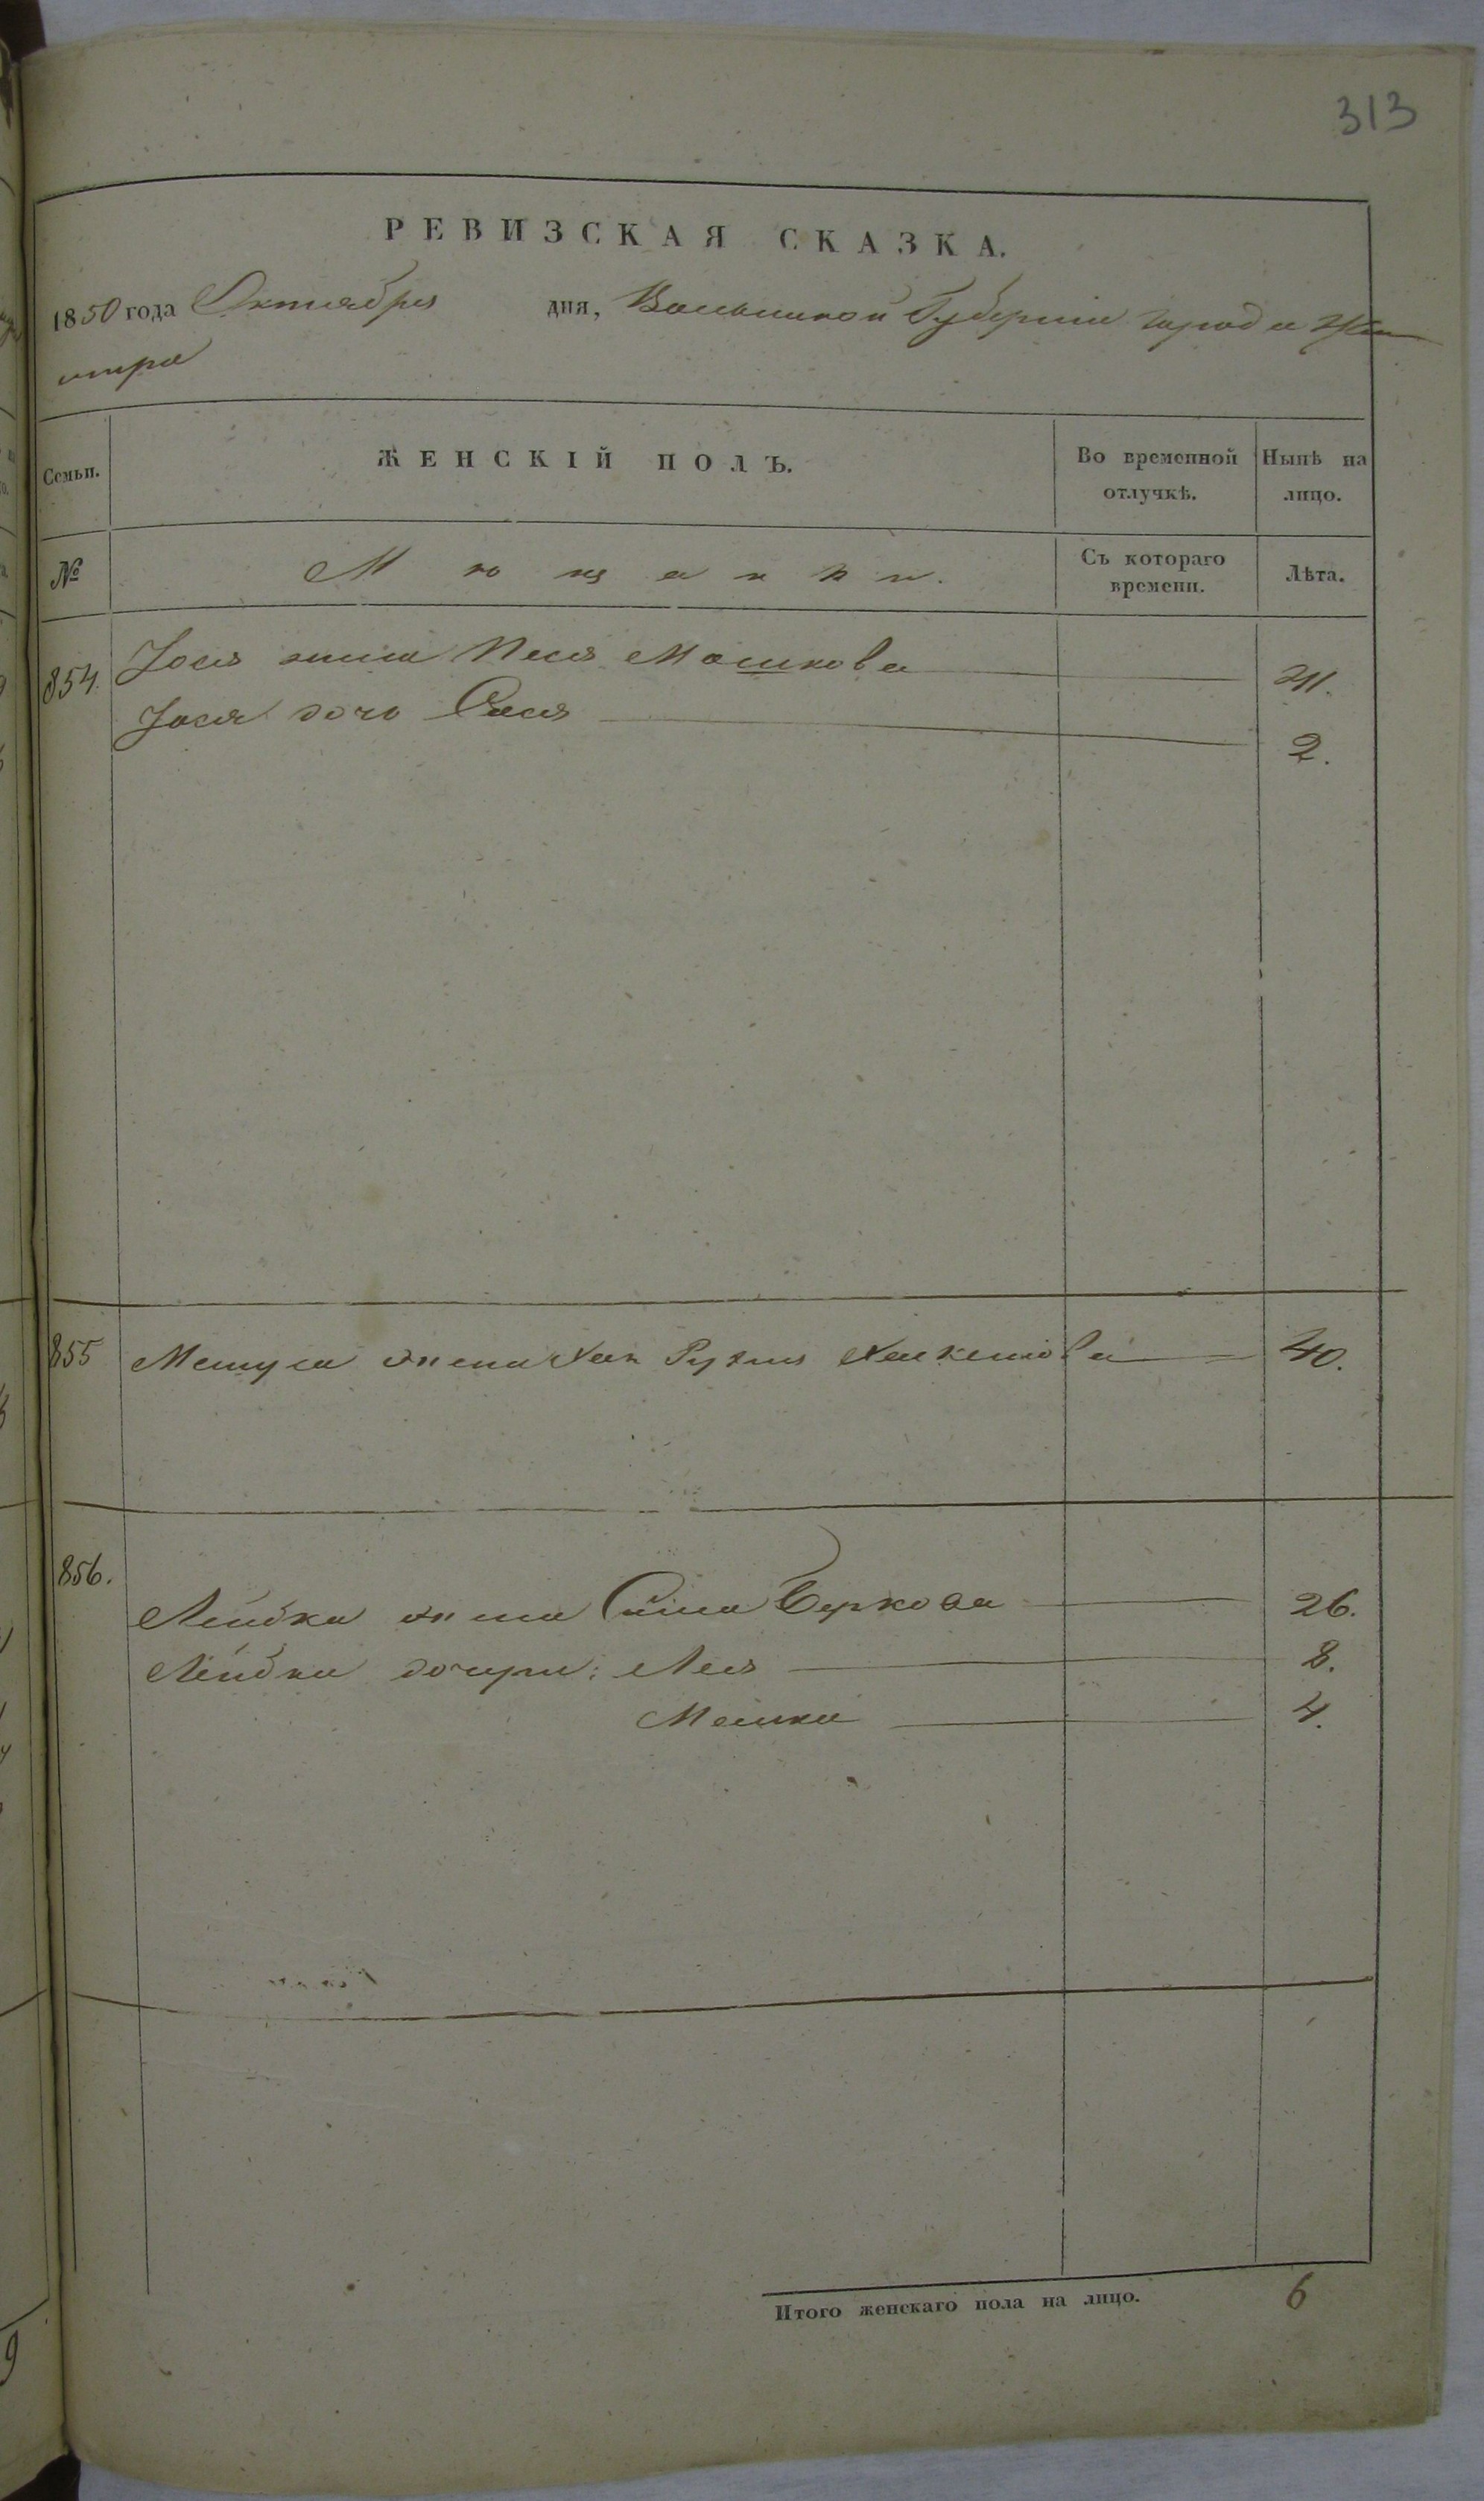 313
РЕВИЗСКАЯ СКАЗКА.
1850 года Октября дня, Волынской Губернии города Жи
томира
Семьи. ЖЕНСКІЙ ПОЛЪ. Во временной отлучкѣ. Нынѣ на лицо.
№ Мѣщанки. Съ котораго времени. Лѣта.
854. Иося жена Песя Мошкова 41.
Иося дочь Рася 2.
855 жена Хая Рухля 40.
856. Лейбка жена Сима Беркова 26.
Лейбки дочери: Лея 8.
4.
Итого женскаго пола на лицо. 6